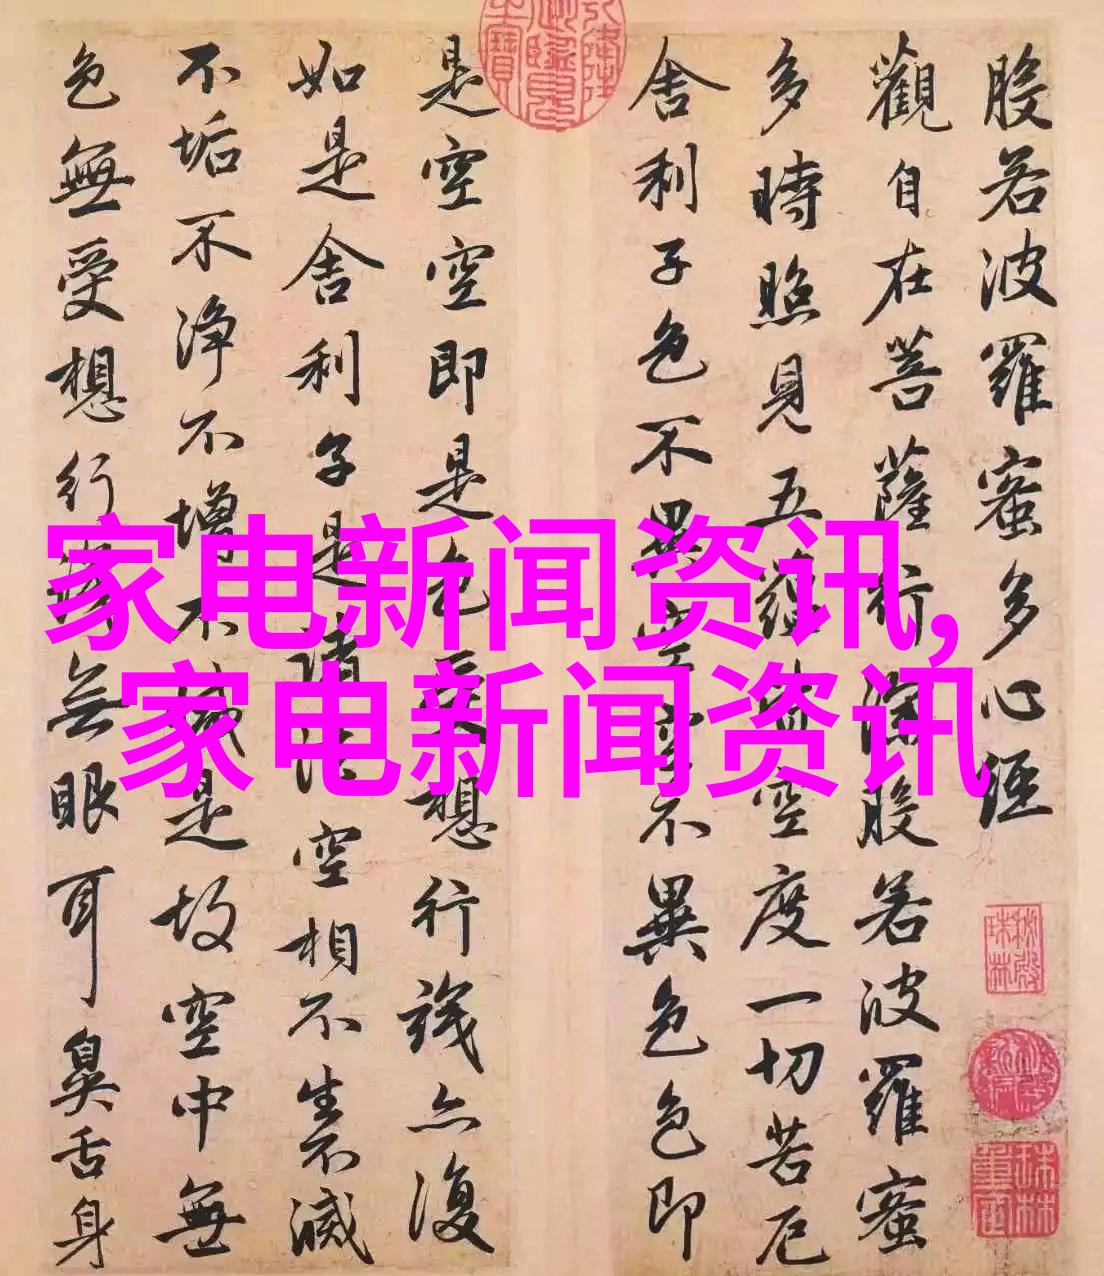 般若波羅蜜多心經
觀自在菩薩行深般若波羅蜜
多時照見五蘊皆空度一切苦厄
舍利子色不異空空不異色色即
是空空即是色受想行識亦復
如是舍利子是諸法空相不生不滅
不垢不净不增不減是故空中無
色無受想行識無眼耳鼻舌身
家电新闻资讯,
家电新闻资讯